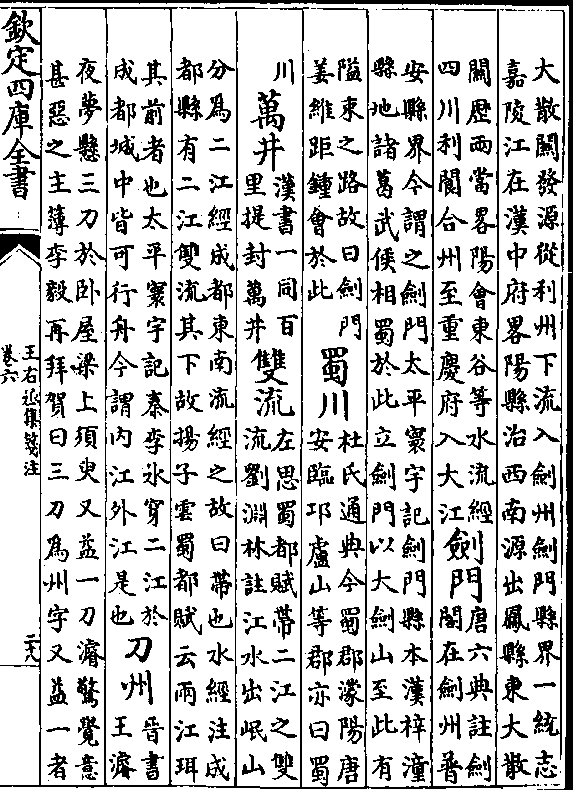 大散關發源從利州下流入劍州劍門縣界一統志
嘉陵江在漢中府畧陽縣治西南源出鳳縣東大散
關歴兩當畧陽會東谷等水流經
四川利閬合州至重慶府入大江
劍門
唐六典註劍
閣在劍州普
安縣界今謂之劍門太平寰宇記劍門縣本漢梓潼
縣地諸葛武侯相蜀於此立劍門以大劍山至此有
隘束之路故曰劍門
姜維距鍾會於此
蜀川
杜氏通典今蜀郡濛陽唐
安臨邛盧山等郡亦曰蜀
川
萬井
漢書一同百
里提封萬井
雙流
左思蜀都賦帶二江之雙
流劉淵林註江水出岷山
分為二江經成都東南流經之故曰帶也水經注成
都縣有二江雙流其下故揚子雲蜀都賦云兩江珥
其前者也太平寰宇記秦李冰穿二江於
成都城中皆可行舟今謂内江外江是也
刀州
晉書
王濬
夜夢懸三刀於卧屋梁上須臾又益一刀濬驚覺意
甚惡之主簿李毅再拜賀曰三刀為州字又益一者
欽定四庫全書
王右丞集箋注
卷六
二十八